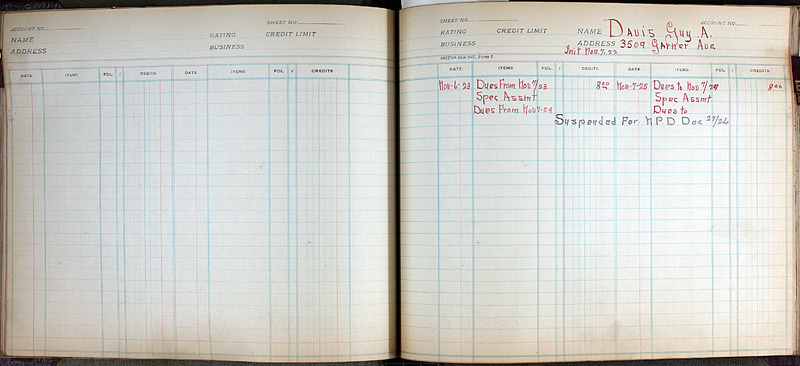 SHEET NO.
ACCOUNT NO.
RATING CREDIT LIMIT
NAME
BUSINESS
ADDRESS
DATE ITEMS FOL. √ DEBITS DATE ITEMS FOL. √ CREDITS
SHEET NO. ACCOUNT NO.
RATING CREDIT LIMIT NAME Davis Guy A.
BUSINESS ADDRESS 3509 Garner Ave
Init Nov. 7. 22
DATE ITEMS FOL. √ DEBITS DATE ITEMS FOL. √ CREDITS
Nov-6-23 Dues From Nov 7/23 8 00 Nov-7-25 Dues to Nov 7/24 8 00
Spec Assmt Spec Assmt
Dues From Nov 7-24 Dues to
Suspended For N P D Dec 27/26